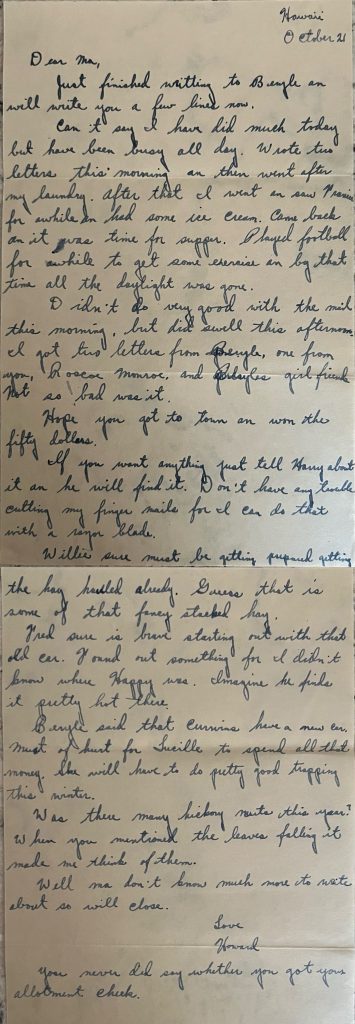 Hawaii
October 21
Dear Ma,
Just finished writting to Beryle an
will write you a few lines now.
Can't say I have did much today
but have been busy all day. Wrote two
letters this morning an then went after
my laundry. After that I went an saw Francis
for awhile an had some ice cream. Came back
an it was time for supper. Played football
for awhile to get some exercise an by that
time all the daylight was gone.
Didn't do very good with the mil
this morning, but did swell this afternoon.
I got two letters from Beryle, one from
you, Roscoe Monroe, and girl friend.
Not so bad was it.
Hope you got to town an won the
fifty dollars.
If you want anything just tell Harry about
it an he will find it. Don't have any trouble
cutting my finger nails for I can do that
with a razor blade.
Willie sure must be getting prepared getting
the hay hauled already. Guess that is
some of that fancy stacked hay.
Fred sure is brave starting out with that
old car. Found out something for I didn't
know where Happy was. Imagine he finds
it pretty hot there.
Beryle said that Curwins have a new car.
Must of hurt for Lucille to spend all that
money. She will have to do pretty good trapping
this winter.
Was there many hickory nuts this year?
When you mentioned the leaves falling it
made me think of them.
Well ma don't know much more to write
about so will close.
Love
Howard
You never did say whether you got your
allotment check.